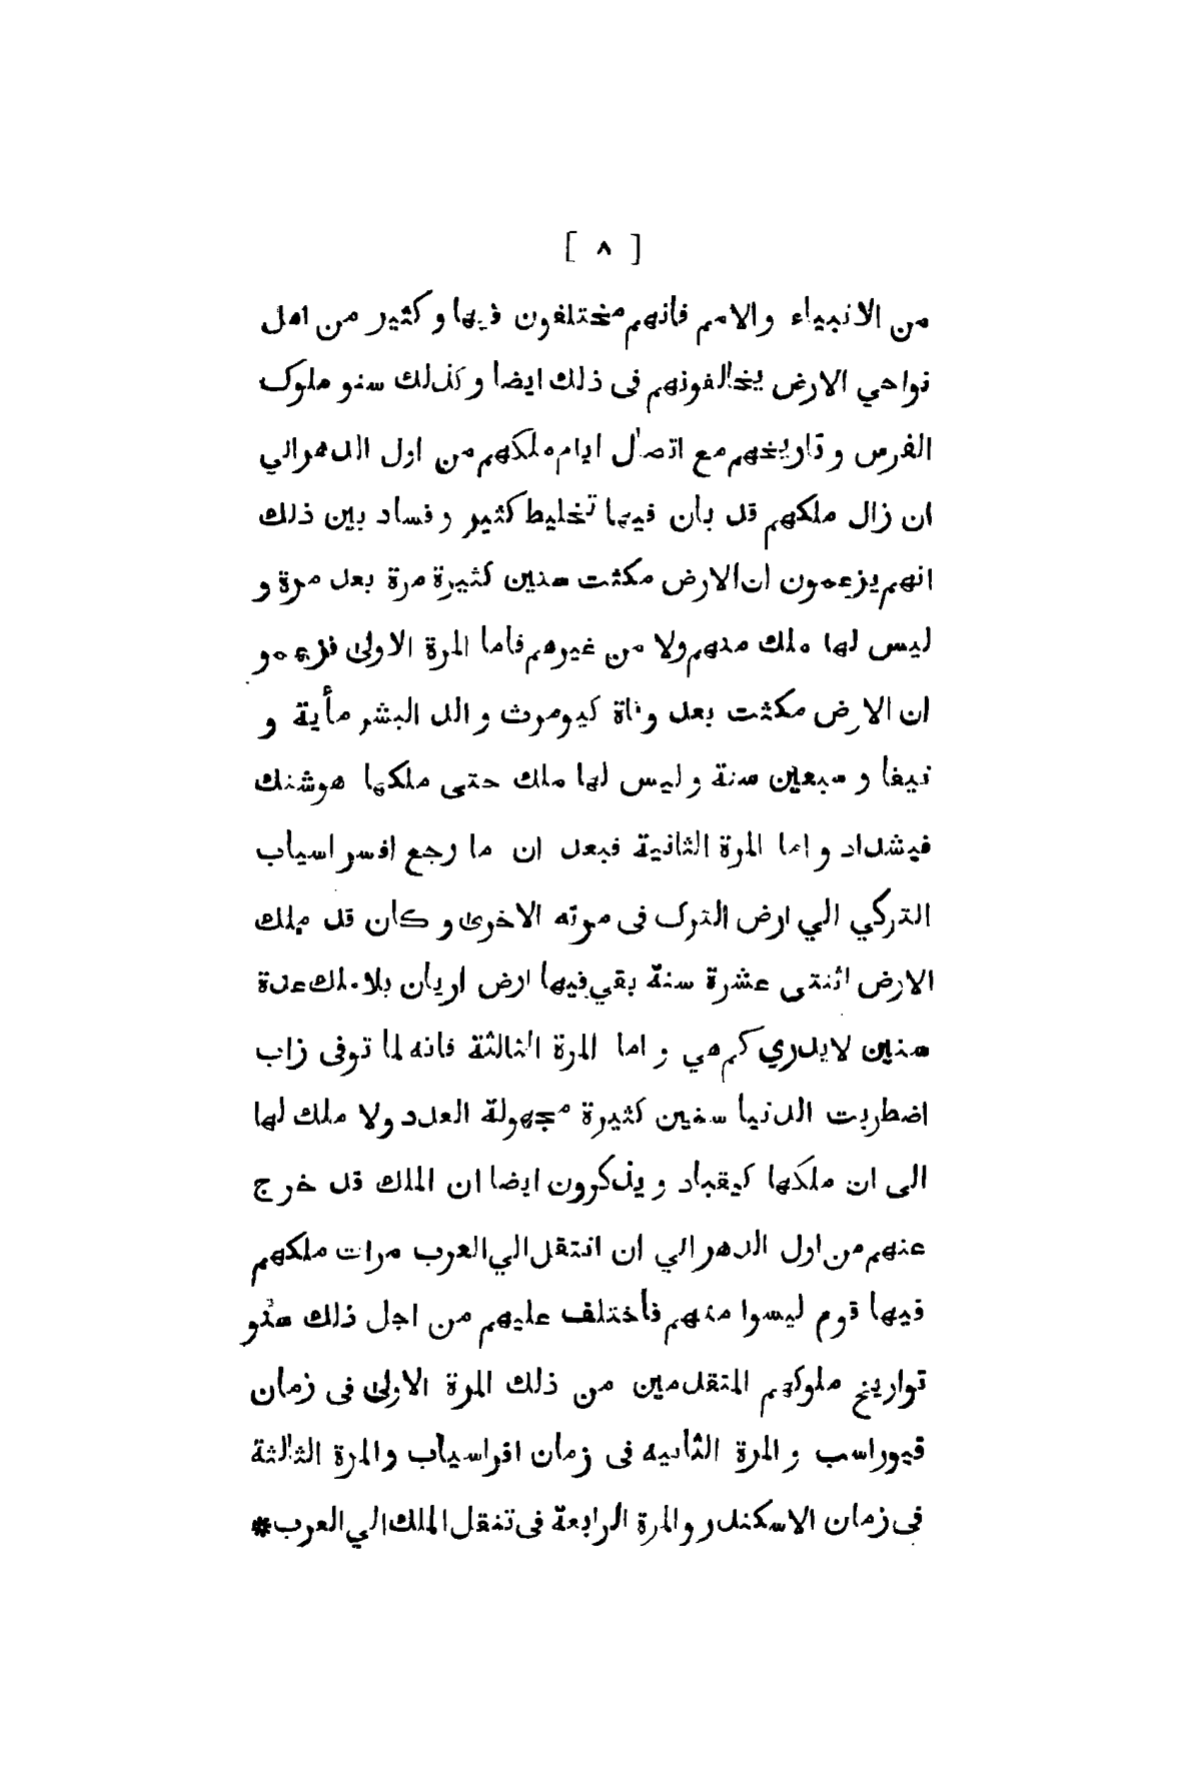 [ ٨ ]
من الانبياء والامم فانهم مختلفون فيها و كثير من اهل
نواحي الارض يخالفونهم فى ذلك ايضا و كذلك سنو ملوك
الفرس و تاريخهم مع اتصال ايام ملكهم من اول الدهر الي
ان زال ملكهم قد بان فيها تخليط كثير و فساد بين ذلك
انهم يزعمون ان الارض مكثت سنين كثيرة مرة بعد مرة و
ليس لها ملك منهم ولا من غيرهم فاما المرة الاولى فزعمو
ان الارض مكثت بعد وفاة كيومرث والد البشر مأية و
نيفا و سبعين سنة و ليس لها ملك حتى ملكها هوشنك
فيشداد و اما المرة الثانية فبعد ان ما رجع افسراسياب
التركي الي ارض الترك فى مرته الاخرى و كان قد ملك
الارض اثنتى عشرة سنة بقي فيها ارض اريان بلا ملك عدة
سنين لايدري كم هي و اما المرة الثالثة فانه لما توفى زاب
اضطربت الدنيا سنين كثيرة مجهولة العدد ولا ملك لها
الى ان ملكها كيقباد و يذكرون ايضا ان الملك قد خرج
عنهم من اول الدهر الي ان انتقل الي العرب مرات ملكهم
فيها قوم ليسوا منهم فأختلف عليهم من اجل ذلك سنو
تواريخ ملوكهم المتقدمين من ذلك المرة الاولى فى زمان
قيوراسب و المرة الثانيه فى زمان افراسياب والمرة الثالثة
فى زمان الاسكندر والمرة الرابعة فى تنقل الملك الي العرب *